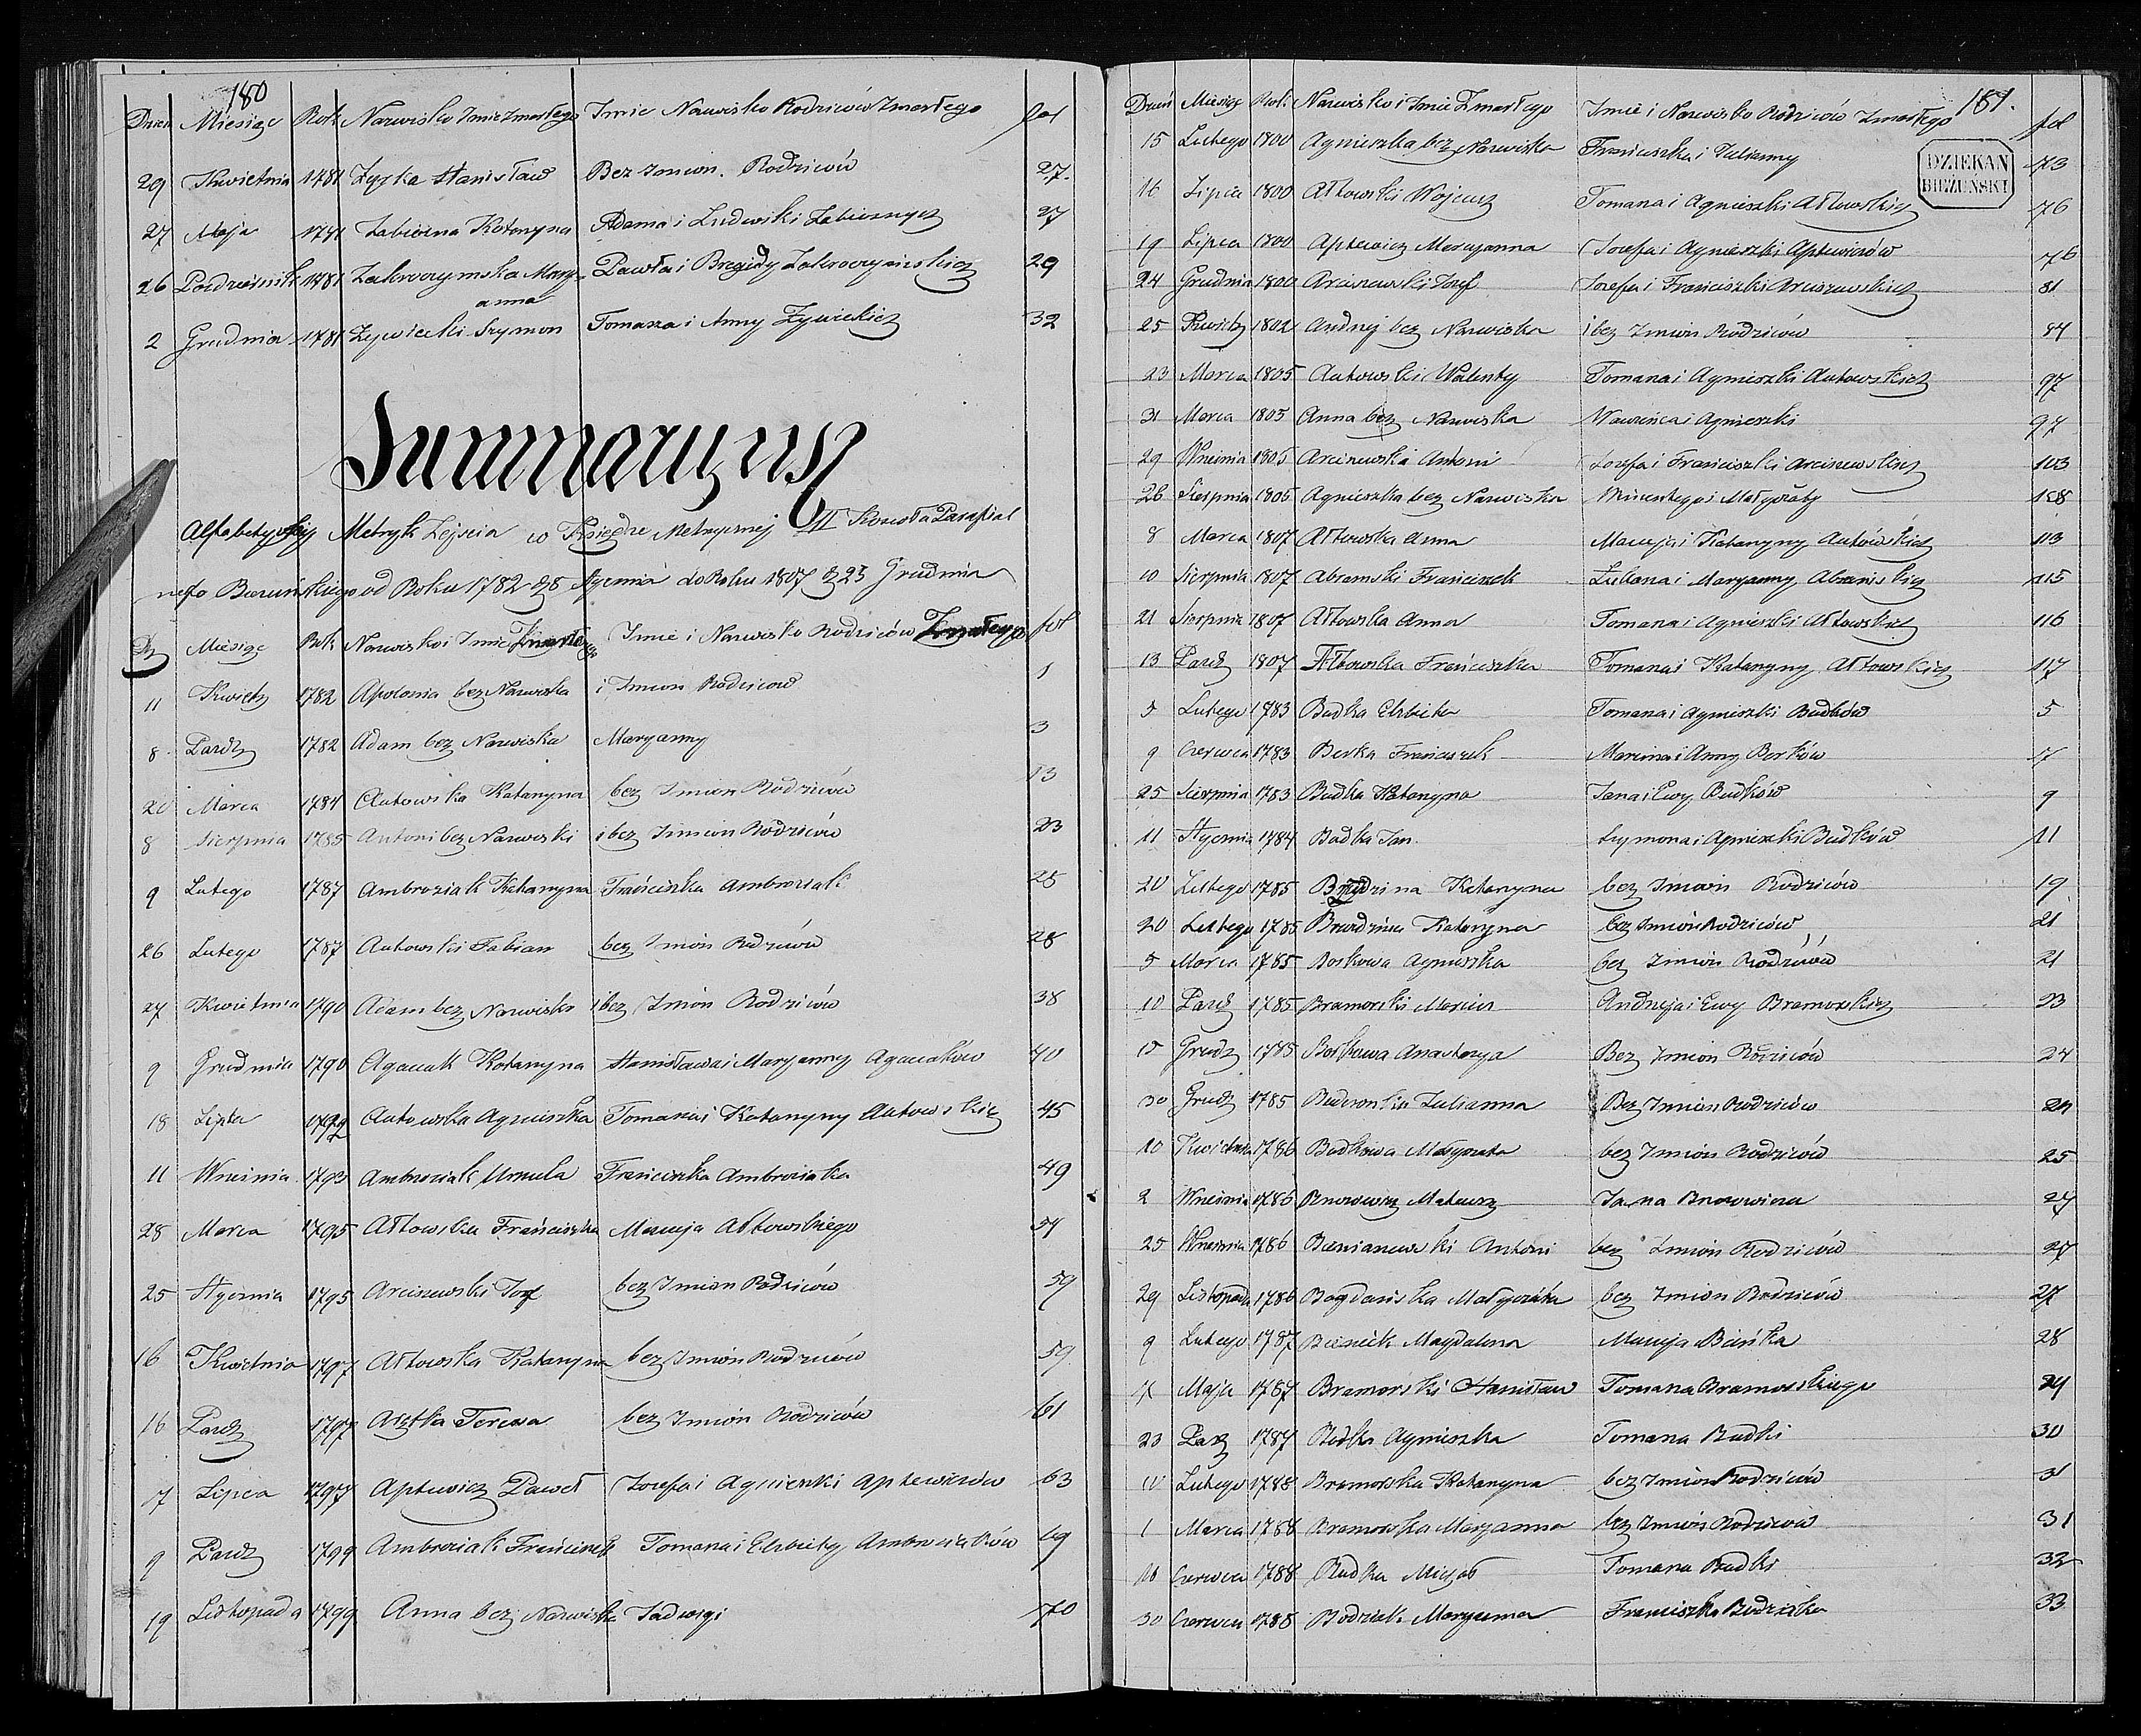 180
Dzień Miesiąc Rok Nazwisko Imie Zmarłego Imie Nazwisko Rodziców Zmarłego fol
29 Kwietnia 1781 Zyzka Stanisław Bez Imion Rodziców 27.
27 Maja 1781 Zabiczna Katarzyna Adama i Ludwiki Zabicznych 27
26 Pazdziernik 1781 Zakroczymska Mary= Pawła i Bregidy Zakroczymskich 29
anna
2 Grudnia 1781 Zywiecki Szymon Tomasza i Anny Zywickich 32
Summaryusz
Alfabetyczny Metryk Zejscia w Księdze Metrycznej II Koscioła Parafial
nego Biezuńskiego od Roku 1782 d 8 Stycznia do Roku 1807 d 23 Grudnia
Dz Miesiąc Rok Nazwisko i Imie Zmarłego Imie i Nazwisko Rodziców Zmarłego fol
11 Kwietn 1782 Apolonia bez Nazwiska i Imion Rodziców 1
8 Pazdz 1782 Adam bez Nazwiska Maryanny 3
20 Marca 1784 Autowska Katarzyna bez Imion Rodziców 13
8 Sierpnia 1785 Antoni bez Nazwiska i bez Imion Rodziców 23
9 Lutego 1787 Ambroziak Katarzyna Franciszka Ambroziak 28
26 Lutego 1787 Autowski Fabian bez Imion Rodziców 28
27 Kwietnia 1790 Adam bez Nazwiska i bez Imion Rodziców 38
9 Grudnia 1790 Agaciak Katarzyna Stanisława i Maryanny Agaciaków 40
18 Lipca 1792 Autowska Agnieszka Tomasza i Katarzyny Autowskich 45
11 Wrzesnia 1793 Ambroziak Urszula Franciszka Ambroziaka 49
28 Marca 1795 Ałtowska Franciszka Macieja Ałtowskiego 54
25 Stycznia 1795 Arciszewski Jozef bez Imion Rodziców 59
16 Kwietnia 1797 Ałtowska Katarzyna bez Imion Rodziców 59
16 Pazdz 1797 Teressa bez Imion Rodziców 61
17 Lipca 1797 Aptewicz Paweł Jozefa i Agnieszki Aptewiczów 63
9 Pazdz 1799 Ambroziak Franciszek Tomasza i Elzbiety Ambroziaków 69
19 Listopada 1799 Anna bez Nazwiska Jadwigi 70
181.
Dzień Miesiąc Rok Nazwisko i Imie Zmarłego Imie i Nazwisko Rodziców Zmarłego fol
DZIEKAN
BIEŻUŃSKI
15 Lutego 1800 Agnieszka bez Nazwiska Franciszka i Julianny 73
16 Lipca 1800 Ałtowski Wojciech Tomasza i Agnieszki Ałtowskich 76
19 Lipca 1800 Aptewicz Maryanna Jozefa i Agnieszki Aptewiczów 76
24 Grudnia 1800 Arciszewski Jozef Jozefa i Franciszki Arciszewskich 81
25 Kwietn 1802 Andrzej bez Nazwiska i bez Imion Rodziców 84
23 Marca 1805 Autowski Walenty Tomasza i Agnieszki Autowskich 97
31 Marca 1805 Anna bez Nazwiska Wawrzeńca i Agnieszki 97
29 Wrzesnia 1805 Arciszewski Antoni Jozefa i Franciszki Arciszewskich 103
26 Sierpnia 1806 Agnieszka bez Nazwiska Wincentego i Małgorzaty 108
8 Marca 1807 Ałtowska Anna Macieja i Katarzyny Autówskich 113
10 Sierpnia 1807 Abramski Franciszek Łukasza i Maryanny Abramskich 115
21 Sierpnia 1807 Ałtowska Anna Tomasza i Agnieszki Ałtowskich 116
13 Pazdz 1807 Ałtowska Franciszka Tomasza i Katarzyny Ałtowskich 117
5 Lutego 1783 Budka Elzbieta Tomasza i Agnieszki Budków 5
9 Czerwca 1783 Berka Franciszek Marcina i Anny Berków 7
25 Sierpnia 1783 Budka Katarzyna Jana i Ewy Budków 9
11 Stycznia 1784 Budka Jan Szymona i Agnieszki Budków 11
20 Lutego 1785 Katarzyna bez Imion Rodziców 19
20 Lutego 1785 Katarzyna bez Imion Rodziców 21
5 Marca 1785 Boskowa Agnieszka bez Imion Rodziców 21
10 Pazdz 1785 Bramorski Marcin Andrzeja i Ewy Bramorskich 23
15 Grudz 1785 Borkowa Anastazya Bez Imion Rodziców 24
30 Grudz 1785 Julianna Bez Imion Rodziców 24
10 Kwietnia 1786 Budkowa Małgorzata bez Imion Rodziców 25
2 Wrzesnia 1786 Mateusz Jana 27
25 Wrzesnia 1786 Antoni bez Imion Rodziców 27
29 Listopada 1786 Bogdanska Małgorzata bez Imion Rodziców 27
9 Lutego 1787 Bieniek Magdalena Macieja Bieńka 28
17 Maja 1787 Bramorski Stanisław Tomasza Bramorskiego 29
23 Paz 1787 Budka Agnieszka Tomasza Budki 30
10 Lutego 1788 Bramorska Katarzyna bez Imion Rodziców 31
1 Marca 1788 Bramorska Maryanna bez Imion Rodziców 31
16 Czerwca 1788 Budka Michał Tomasza Budki 32
30 Czerwca 1788 Budziak Maryanna Franciszka Budziaka 33